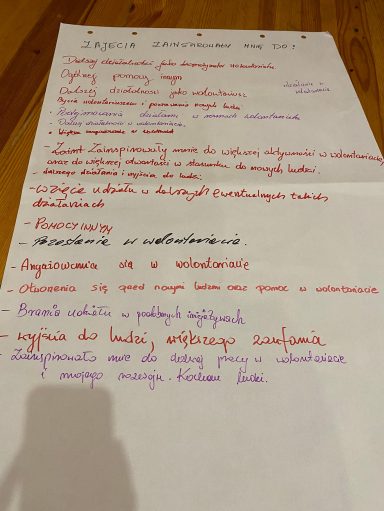 ZAJĘCIA ZAINSPIROWAŁY MNIE DO:
Dalszej działalności jako koordynator wolontariatu
Ogólnej pomocy innym
działania w wolontariacie
Dalszej działalności jako wolontariusz
Bycia wolontariuszem i poznawania nowych ludzi
- Podejmowania działania w ramach wolontariatu
- Dalszej działalności w wolontariacie.
- Większe w wolontariat
- Zainspirowały mnie do większej aktywności w wolontariacie,
oraz do większej otwartości w stosunku do nowych ludzi.
- dalszego działania i wyjścia do ludzi
- wzięcie udziału w dalszych ewentualnych takich
działaniach
- POMOCY INNYM
- Pozostanie w wolontariacie.
- Angażowania się w wolontariacie
- Otworzenia się przed nowymi ludźmi oraz pomoc w wolontariacie
- Brania udziału w podobnych inicjatywach
- wyjścia do ludzi, większego zaufania
- Zainspirowało mnie do dalszej pracy w wolontariacie
i mojego rozwoju. Kocham ludzi.